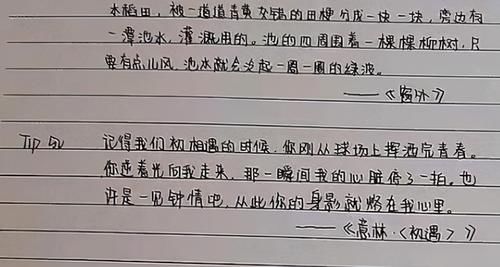 水稻田，被一道道青黄交错的田埂分成一块一块，旁边有
一潭池水，灌溉用的。池的四周围着一棵棵柳树，只
要有点儿风，池水就会泛起一圈一圈的绿波。
——《窗外》
Tip 52 记得我们初相遇的时候，你刚从球场上挥洒完青春。
你逆着光向我走来，那一瞬间我的心脏停了一拍。也
许是一见钟情吧，从此你的身影就烙在我心里。
——《意林·〈初遇〉》